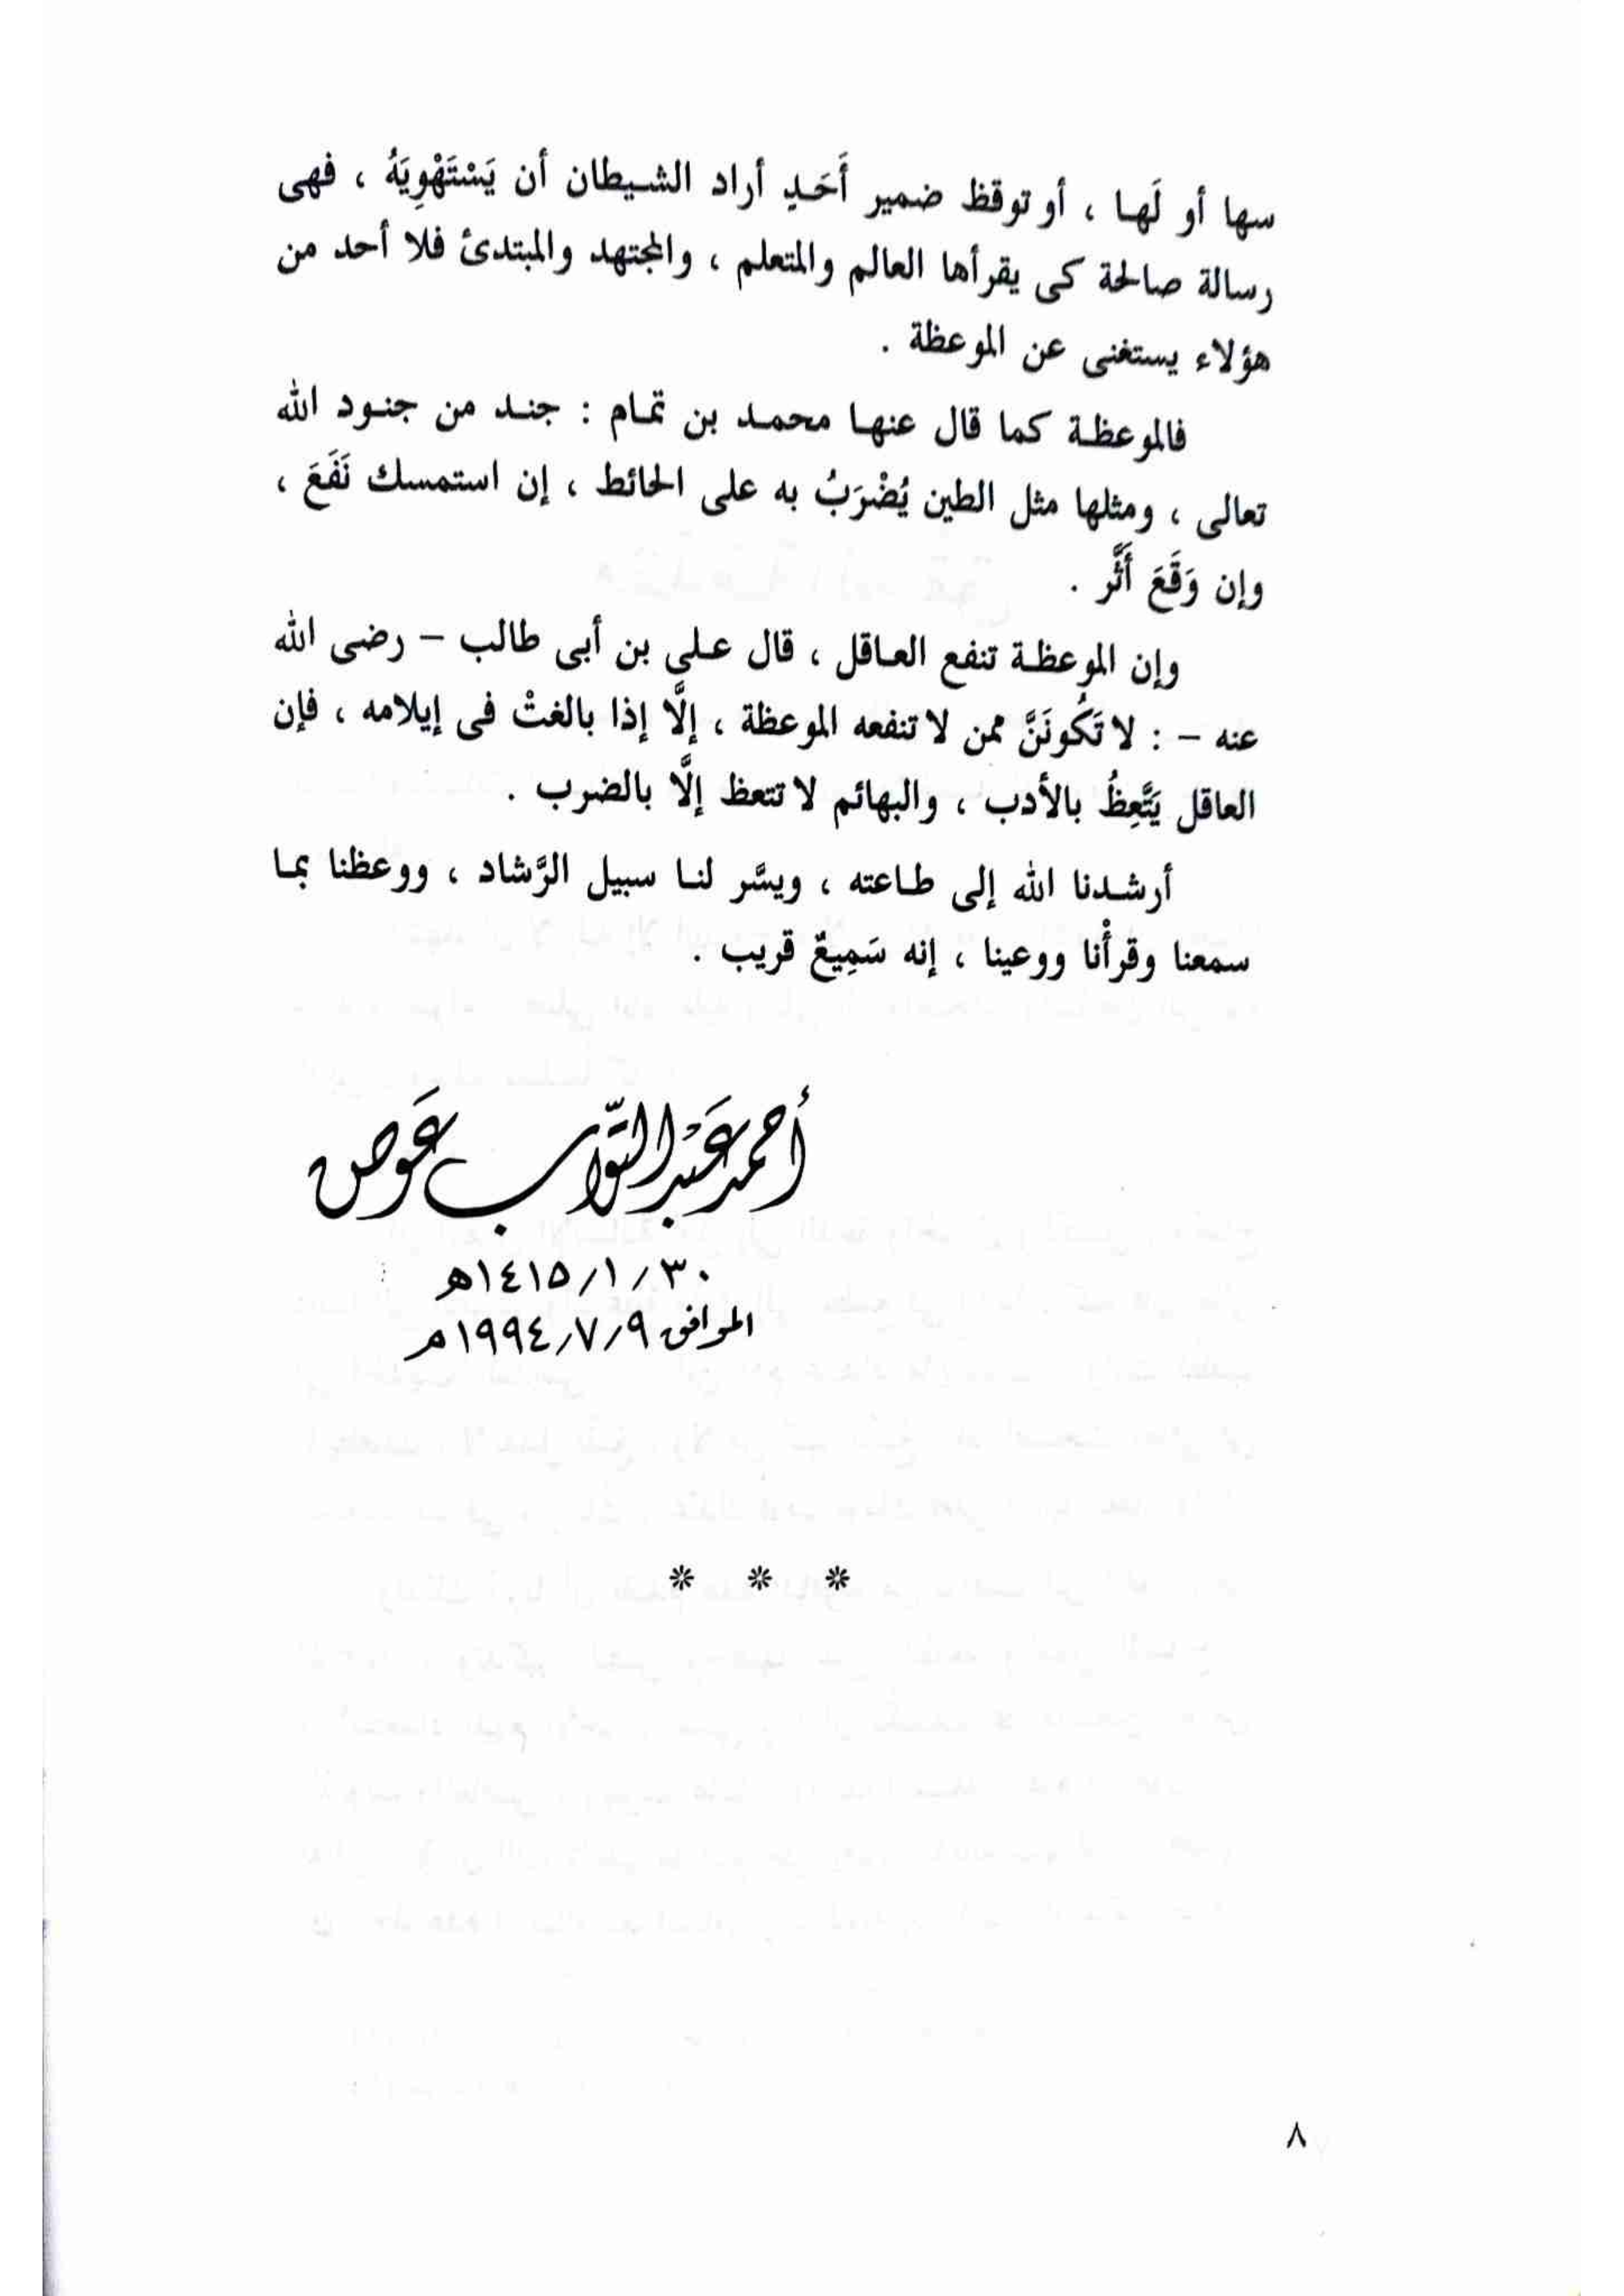 سها أو لَها ، أو توقظ ضمير أَحَدٍ أراد الشيطان أن يَسْتَهْوِيَهُ ، فهى
رسالة صالحة كى يقرأها العالم والمتعلم ، والمجتهد والمبتدئ فلا أحد من
هؤلاء يستغنى عن الموعظة .
فالموعظة كما قال عنها محمد بن تمام : جند من جنود الله
تعالى ، ومثلها مثل الطين يُضْرَبُ به على الحائط ، إن استمسك نَفَعَ ،
وإن وَقَعَ أَثَّر .
وإن الموعظة تنفع العاقل ، قال على بن أبى طالب – رضى الله
عنه – : لا تَكُونَنَّ ممن لا تنفعه الموعظة ، إلَّا إذا بالغتْ فى إيلامه ، فإن
العاقل يَتَّعِظُ بالأدب ، والبهائم لا تتعظ إلَّا بالضرب .
أرشدنا الله إلى طاعته ، ويسَّر لنا سبيل الرَّشاد ، ووعظنا بما
سمعنا وقرأْنا ووعينا ، إنه سَمِيعٌ قريب .
أحمد عَبد التَّواب عَوض
٣٠ / ١ / ١٤١٥هـ
الموافق ٩ / ٧ / ١٩٩٤م
* * *
٨